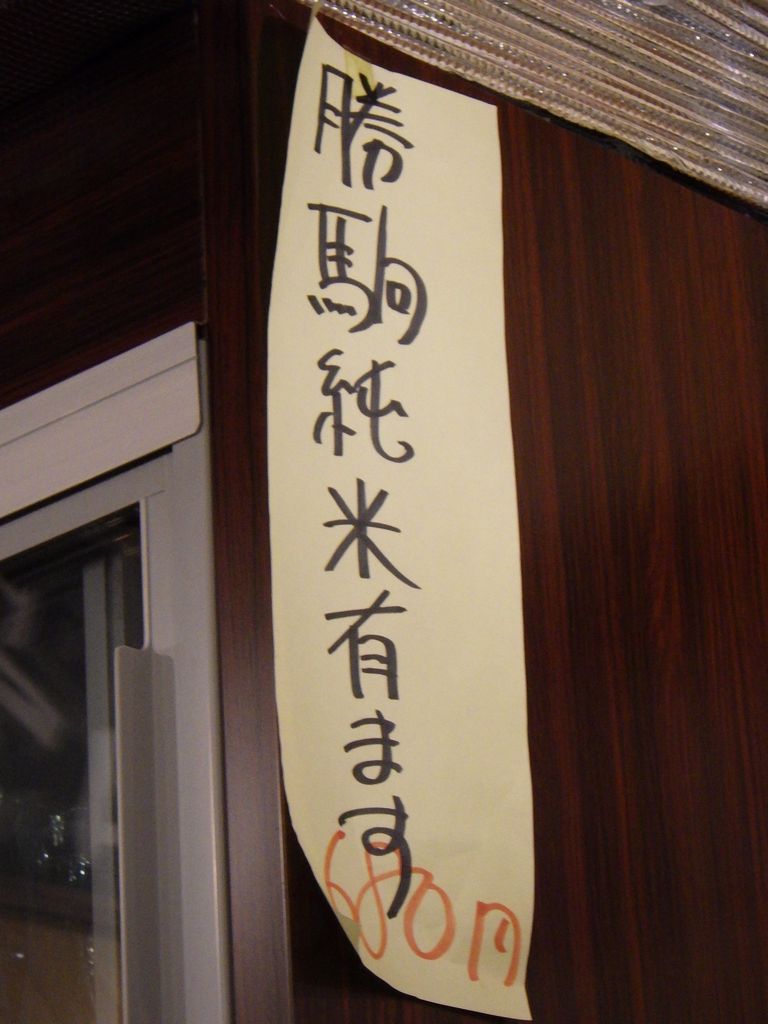 勝駒純米有ます
680円